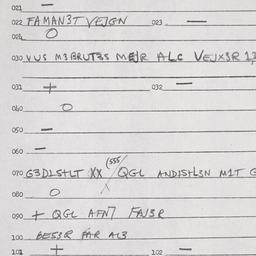 021 —
022 FAMAN3T VEJGN 023 —
024 O
030 VUS M3BRUT3S MEJR ALC VEJX3R 13
031 + 032 —
040 O
050 —
060 —
070 G3D1SHLT XX (555/ QGL AND1SHL3N M1T G
080 O
090 + QGL AFN7 FAJ3R
100 BES3R FAR AL3
101 + 102 —